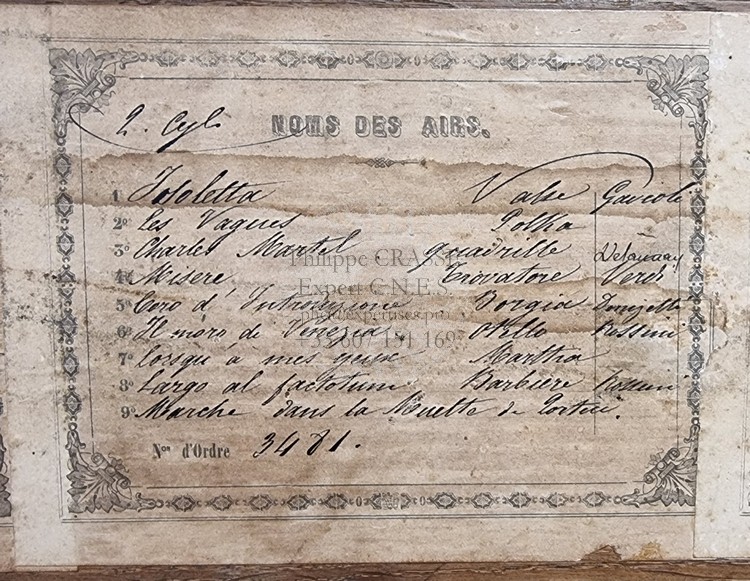 2. Cyl.
NOMS DES AIRS.
1 Isoletta Valse Gavioli
2º Les Vagues Polka
3º Charles Martel quadrille Delaunay
4º Misere, Trovatore Verdi
5º Coro d'Introduzione Borgia Donizetti
6º Il moro di Venezia. Otello Rossini
7º Lorsqu'à mes yeux Martha
8º Largo al factotum Barbiere Rossini
9º Marche dans la Muette de Portici.
Nos d'Ordre 3481.
Philippe CRASSÉ
Expert C.N.E.S.
phc@expertises.pro